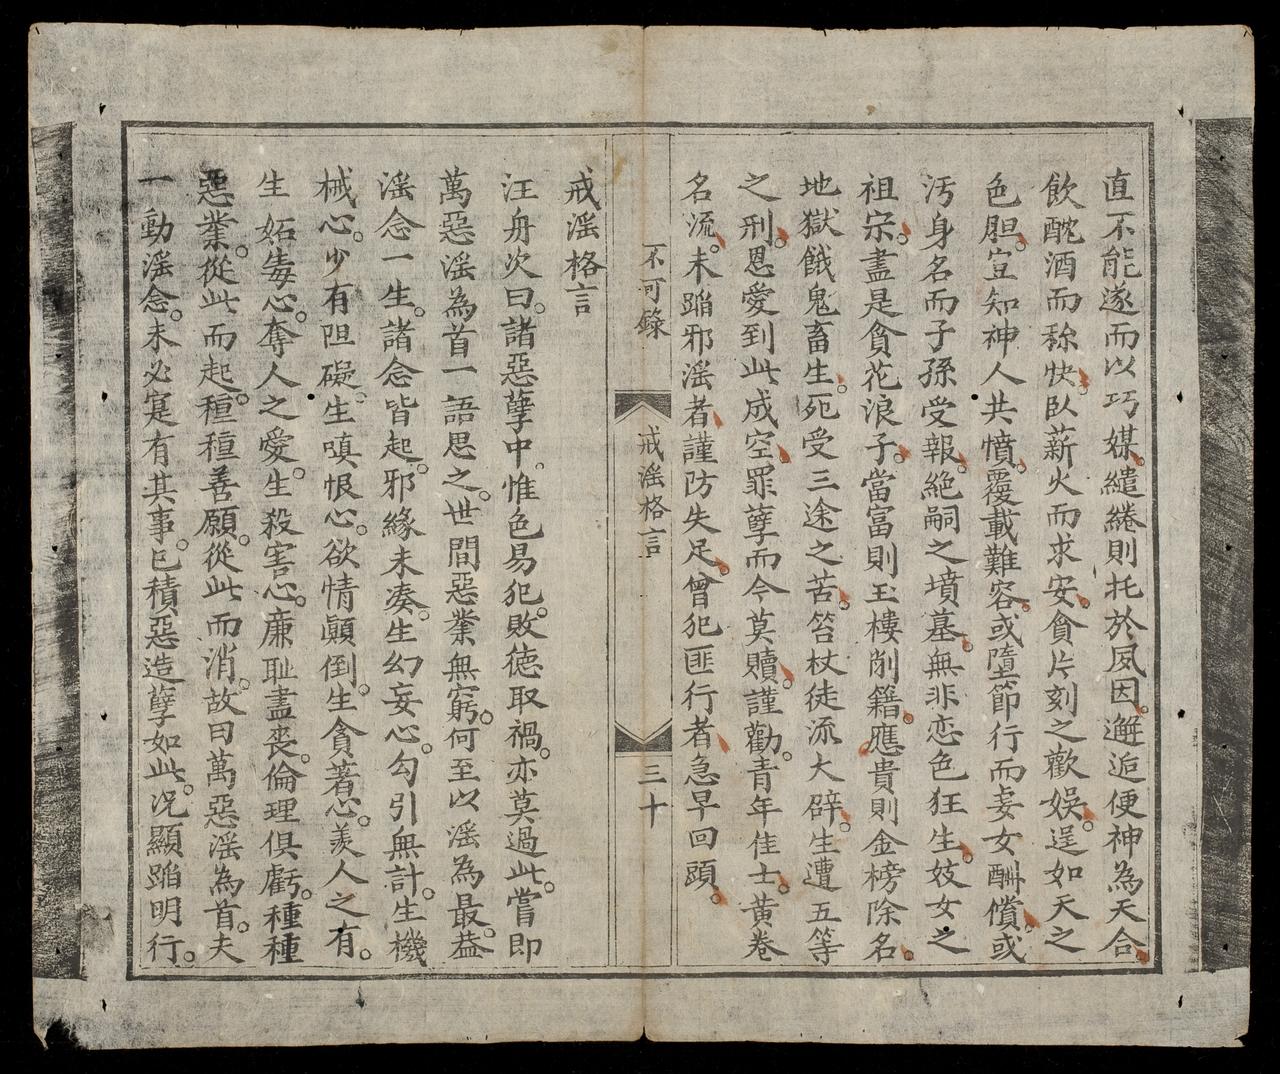 直不能遂而以巧媒。繾綣則托於夙因。邂逅便神為天合
飲酖酒而称快。臥薪火而求安。貪片刻之歡娛。逞如天之
色胆。豈知神人共憤。覆載難容。或墮節行而妾女酬償。或
汚身名而子孫受報。絕嗣之墳墓。無非恋色狂生。妓女之
祖宗。盡是貪花浪子。當富則玉樓削籍。應貴則金榜除名。
地獄餓鬼畜生。死受三途之苦。笞杖徒流大辟。生遭五等
之刑。恩愛到此成空。罪孽而今莫贖。謹勸。青年佳士。黃卷
名流。未蹈邪滛者。謹防失足。曾犯匪行者。急早回頭。
不可錄
戒滛格言
三十
戒滛格言
汪舟次曰。諸惡孽中。惟色易犯。敗德取禍。亦莫過此。嘗即
萬惡滛為首一語思之。世間惡業無窮。何至以滛為最。葢
滛念一生。諸念皆起。邪緣未凑。生幻妄心。勾引無計。生機
械心。少有阻礙。生嗔恨心。欲情顚倒。生貪著心。羡人之有。
生妬毒心。奪人之愛。生殺害心。廉耻盡丧。倫理俱虧。種種
惡業。從此而起。種種善願。從此而消。故曰萬惡滛為首。夫
一動滛念。未必寔有其事。已積惡造孽如此。况顯蹈明行。